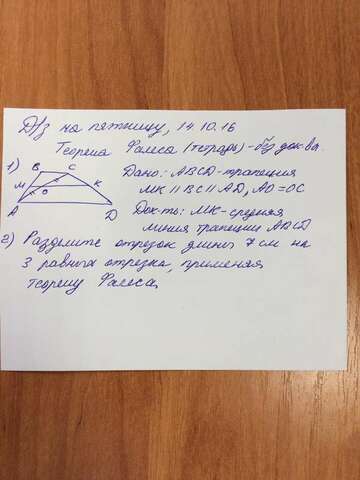 Д/з на пятницу, 14.10.16
Теорема Фалеса (тетрадь) - без док-ва.
1)
B C
M O K
A D
Дано: ABCD-трапеция
MK || BC || AD, AO = OC
Док-ть: MK-средняя
линия трапеции ABCD
2) Разделите отрезок длины 7 см на
3 равных отрезка, применяя
теорему Фалеса.